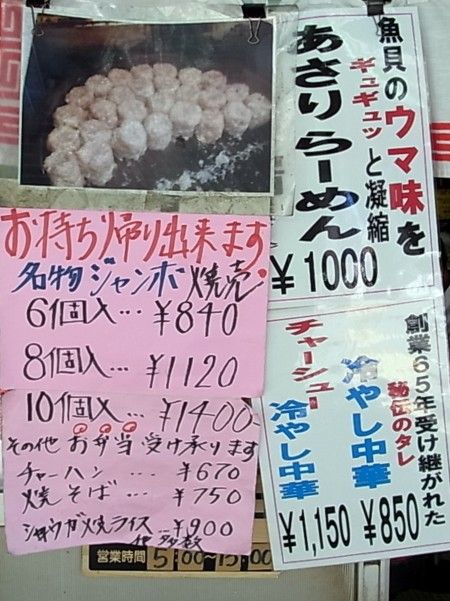 魚貝のウマ味を
ギュギュッと凝縮
あさりらーめん
¥1000
お持ち帰り出来ます
名物ジャンボ焼売
6個入…¥840
8個入…¥1120
10個入…¥1400
その他お弁当受け承ります
チャーハン…¥670
焼そば…¥750
ショウガ焼ライス…¥900
他多数
創業65年受け継がれた
秘伝のタレ
冷やし中華
¥850
チャーシュー
冷やし中華
¥1,150
営業時間 5:00~15:00